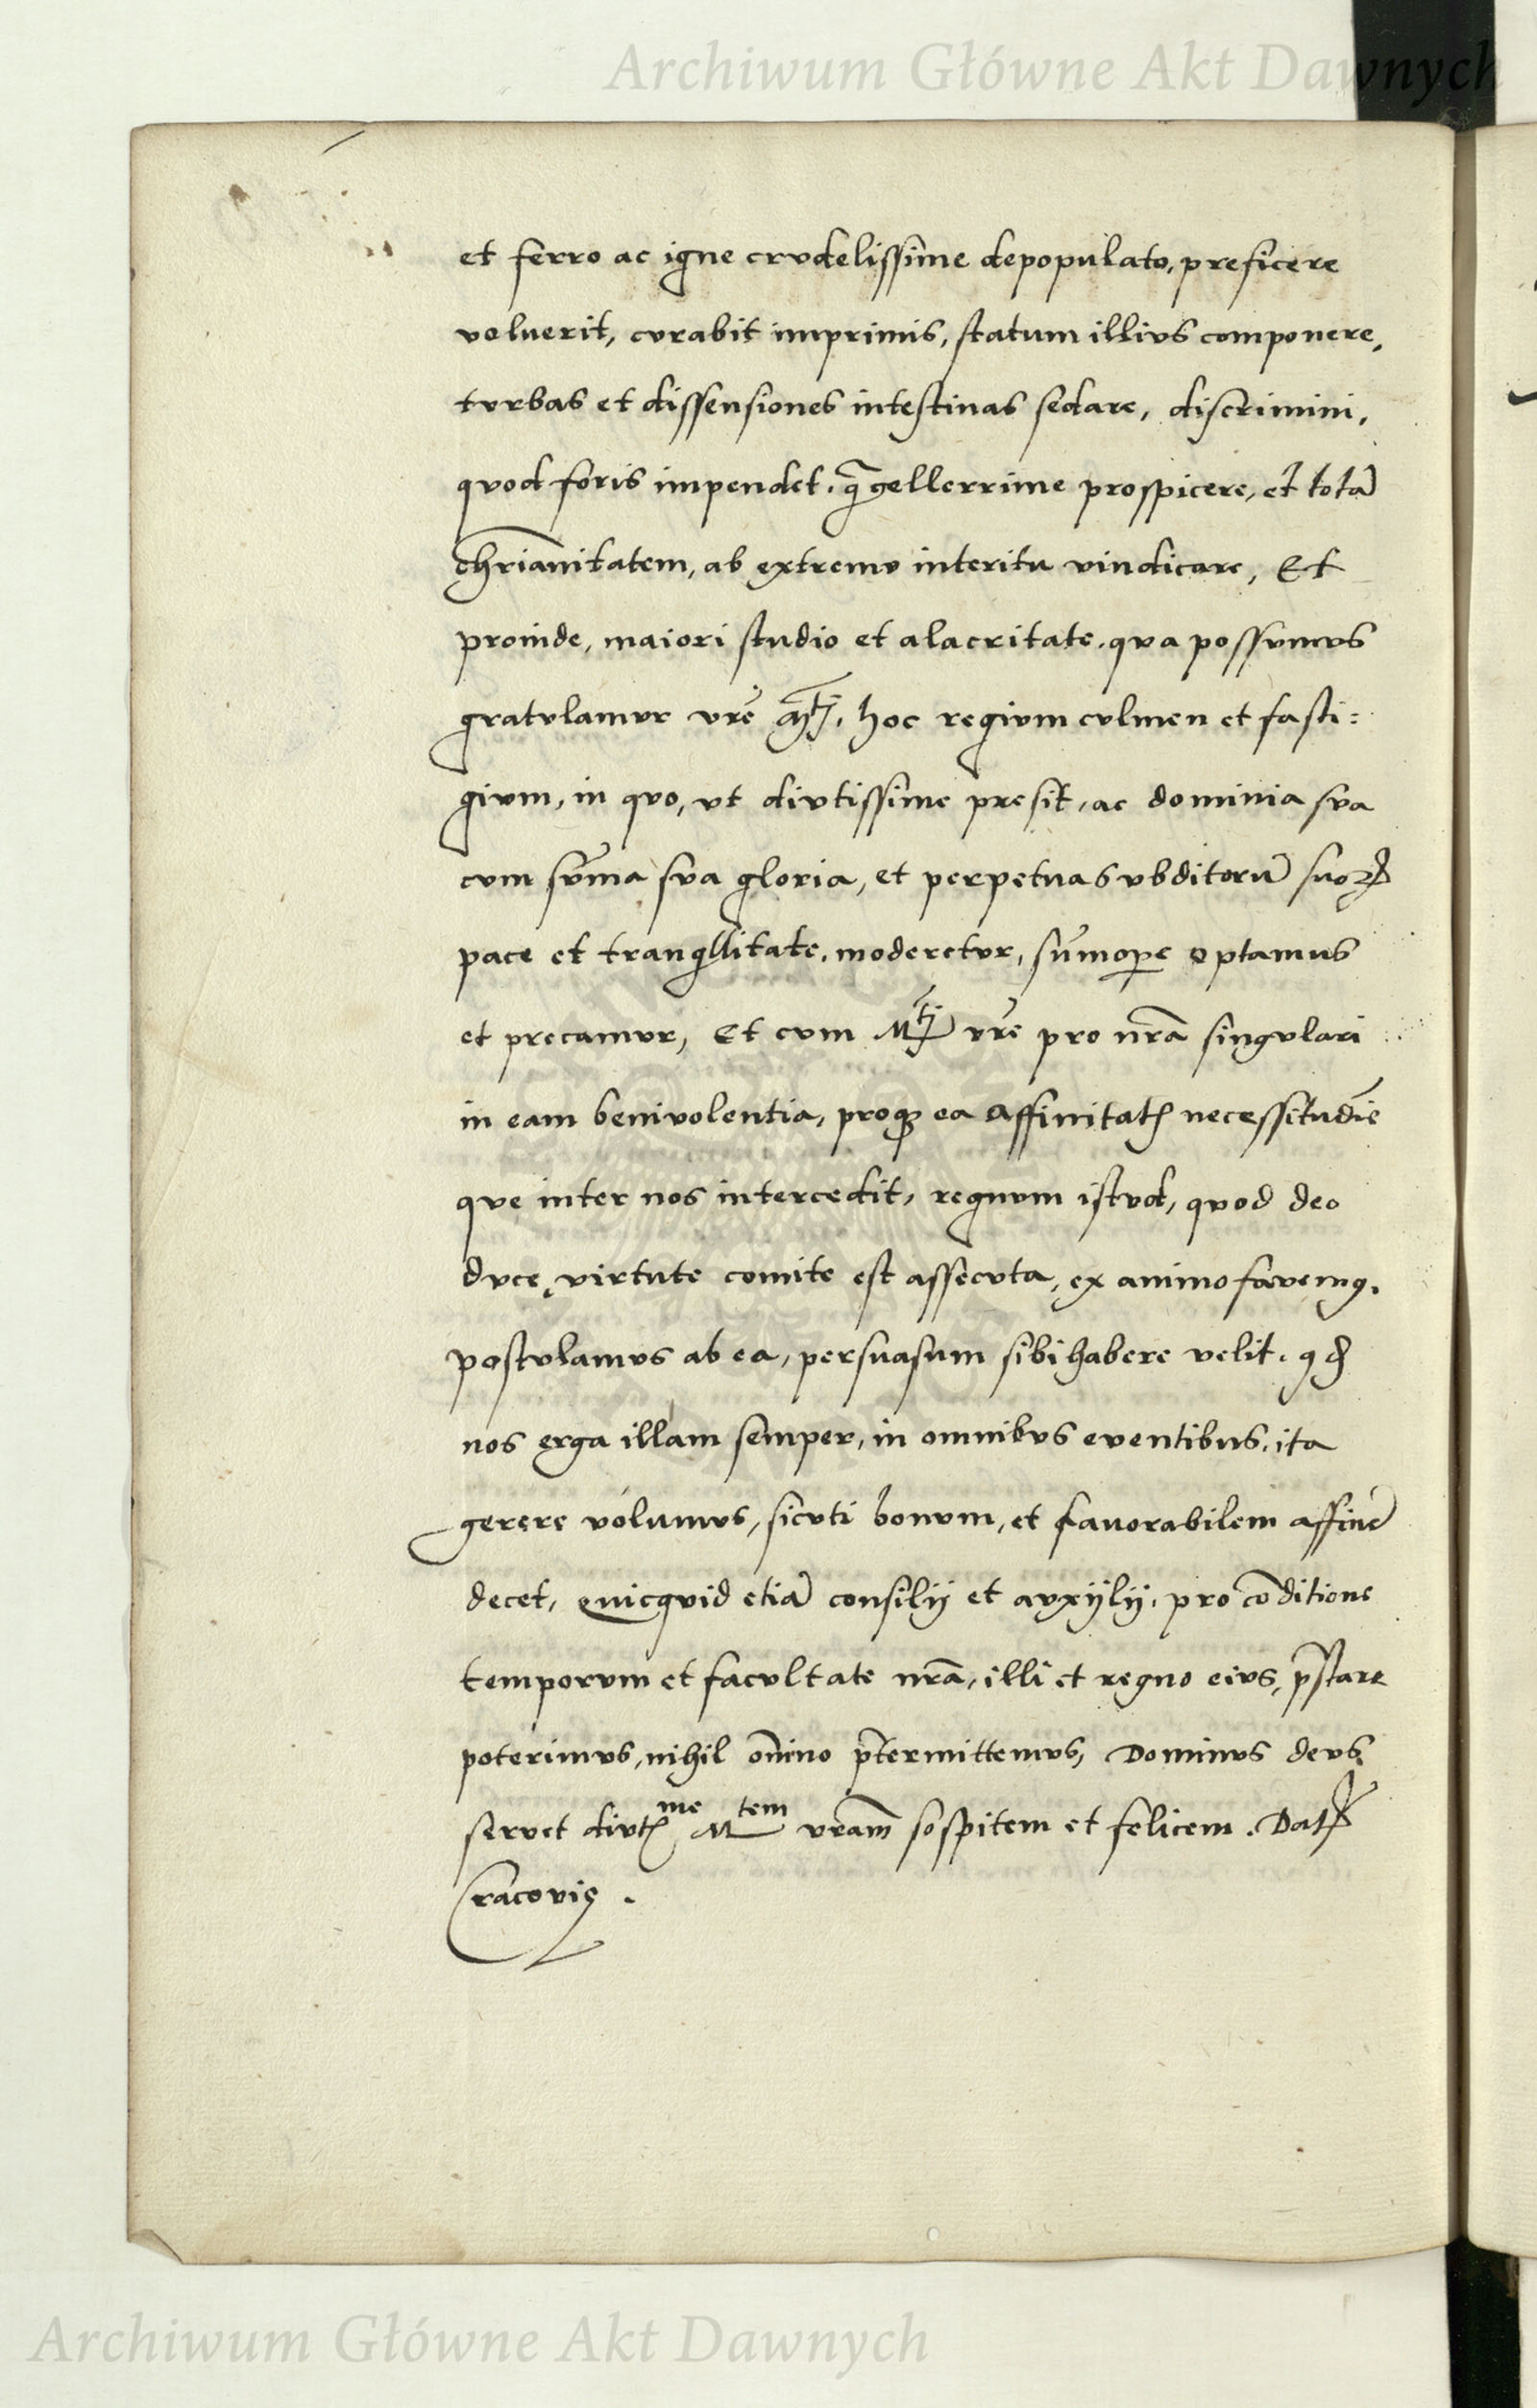 Archiwum Główne Akt Dawnych
et ferro ac igne crudelissime depopulato, preficere
voluerit, curabit imprimis, statum illius componere,
turbas et dissensiones intestinas sedare, discrimini,
quod foris impendet, q̃ cellerrime prospicere, et totã
chrianitatem, ab extremo interitu vindicare, Et
proinde, maiori studio et alacritate, qua possumus
gratulamur vrẽ Mtj, hoc regium culmen et fasti=
gium, in quo, ut diutissime presit, ac dominia sua
cum sũma sua gloria, et perpetua subditorũ suoꝝ
pace et tranqllitate, moderetur, sũmope optamus
et precamur, Et cum Mtj vrẽ pro nrã singulari
in eam benivolentia, proqꝫ ea affinitatꝭ necessitudĩe
que inter nos intercedit, regnum istud, quod deo
duce, virtute comite est assecuta, ex animo favemꝯ.
postulamus ab ea, persuasum sibi habere velit, ꝙ
nos erga illam semper, in omnibus eventibus, ita
gerere volumus, sicuti bonum, et favorabilem affinẽ
decet, quicquid etiã consilij et auxijlij, pro cõditione
temporum et facultate nrã, illi et regno eius, p̃stare
poterimus, nihil om̃ino p̃termittemus, Dominus deus
servet diutꝭme Mtem vram̃ sospitem et felicem. Datꝭ
Cracovię.
Archiwum Główne Akt Dawnych